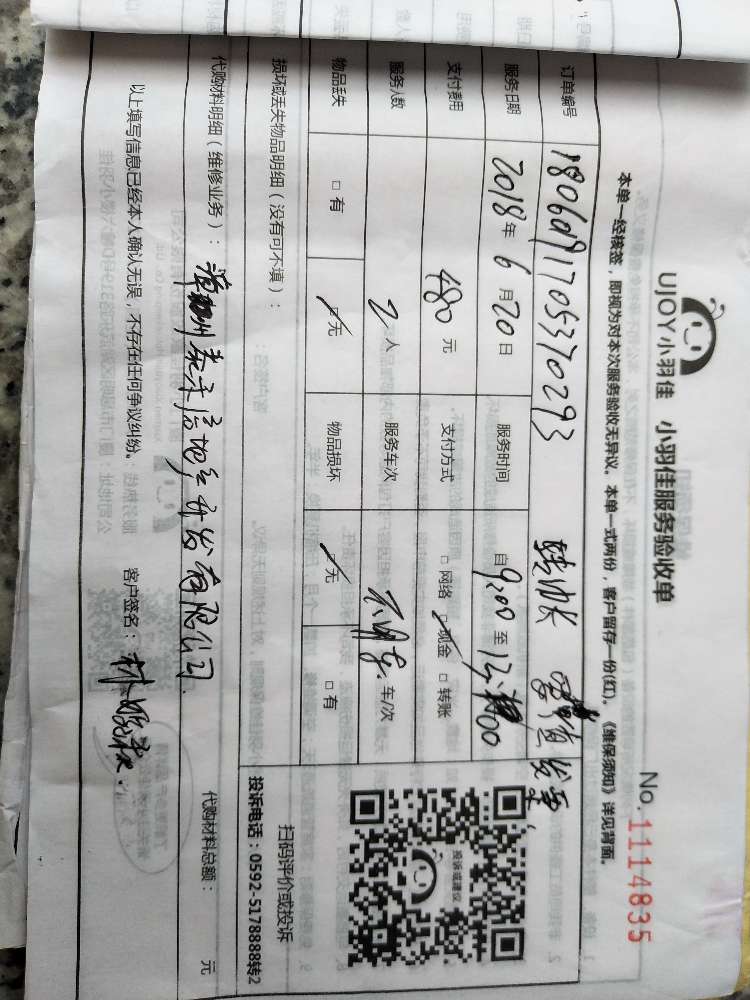 UJOY小羽佳 小羽佳服务验收单
No. 1114835
本单一经核签，即视为对本次服务验收无异议。本单一式两份，客户留存一份(红)。《维保须知》详见背面。
订单编号 1806091705370293 转帐 发票
服务日期 2018年6月20日 服务时间 自9:00至12:00
支付费用 480元 支付方式 □网络 ☑现金 □转账
服务人数 2人 服务车次 车/次
物品丢失 □有 ☑无 物品损坏 ☑无 □有
损坏或丢失物品明细（没有可不填）：
扫码评价或投诉
投诉电话：0592-5178888转2
投诉或建议
代购材料明细（维修业务）： 漳州 房地产开发有限公司 代购材料总额： 元
以上填写信息已经本人确认无误，不存在任何争议纠纷。 客户签名： 林